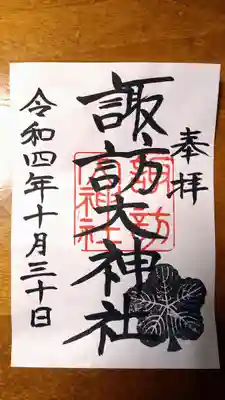 奉拝
諏訪大神社
諏訪
大神社
令和四年十月三十日